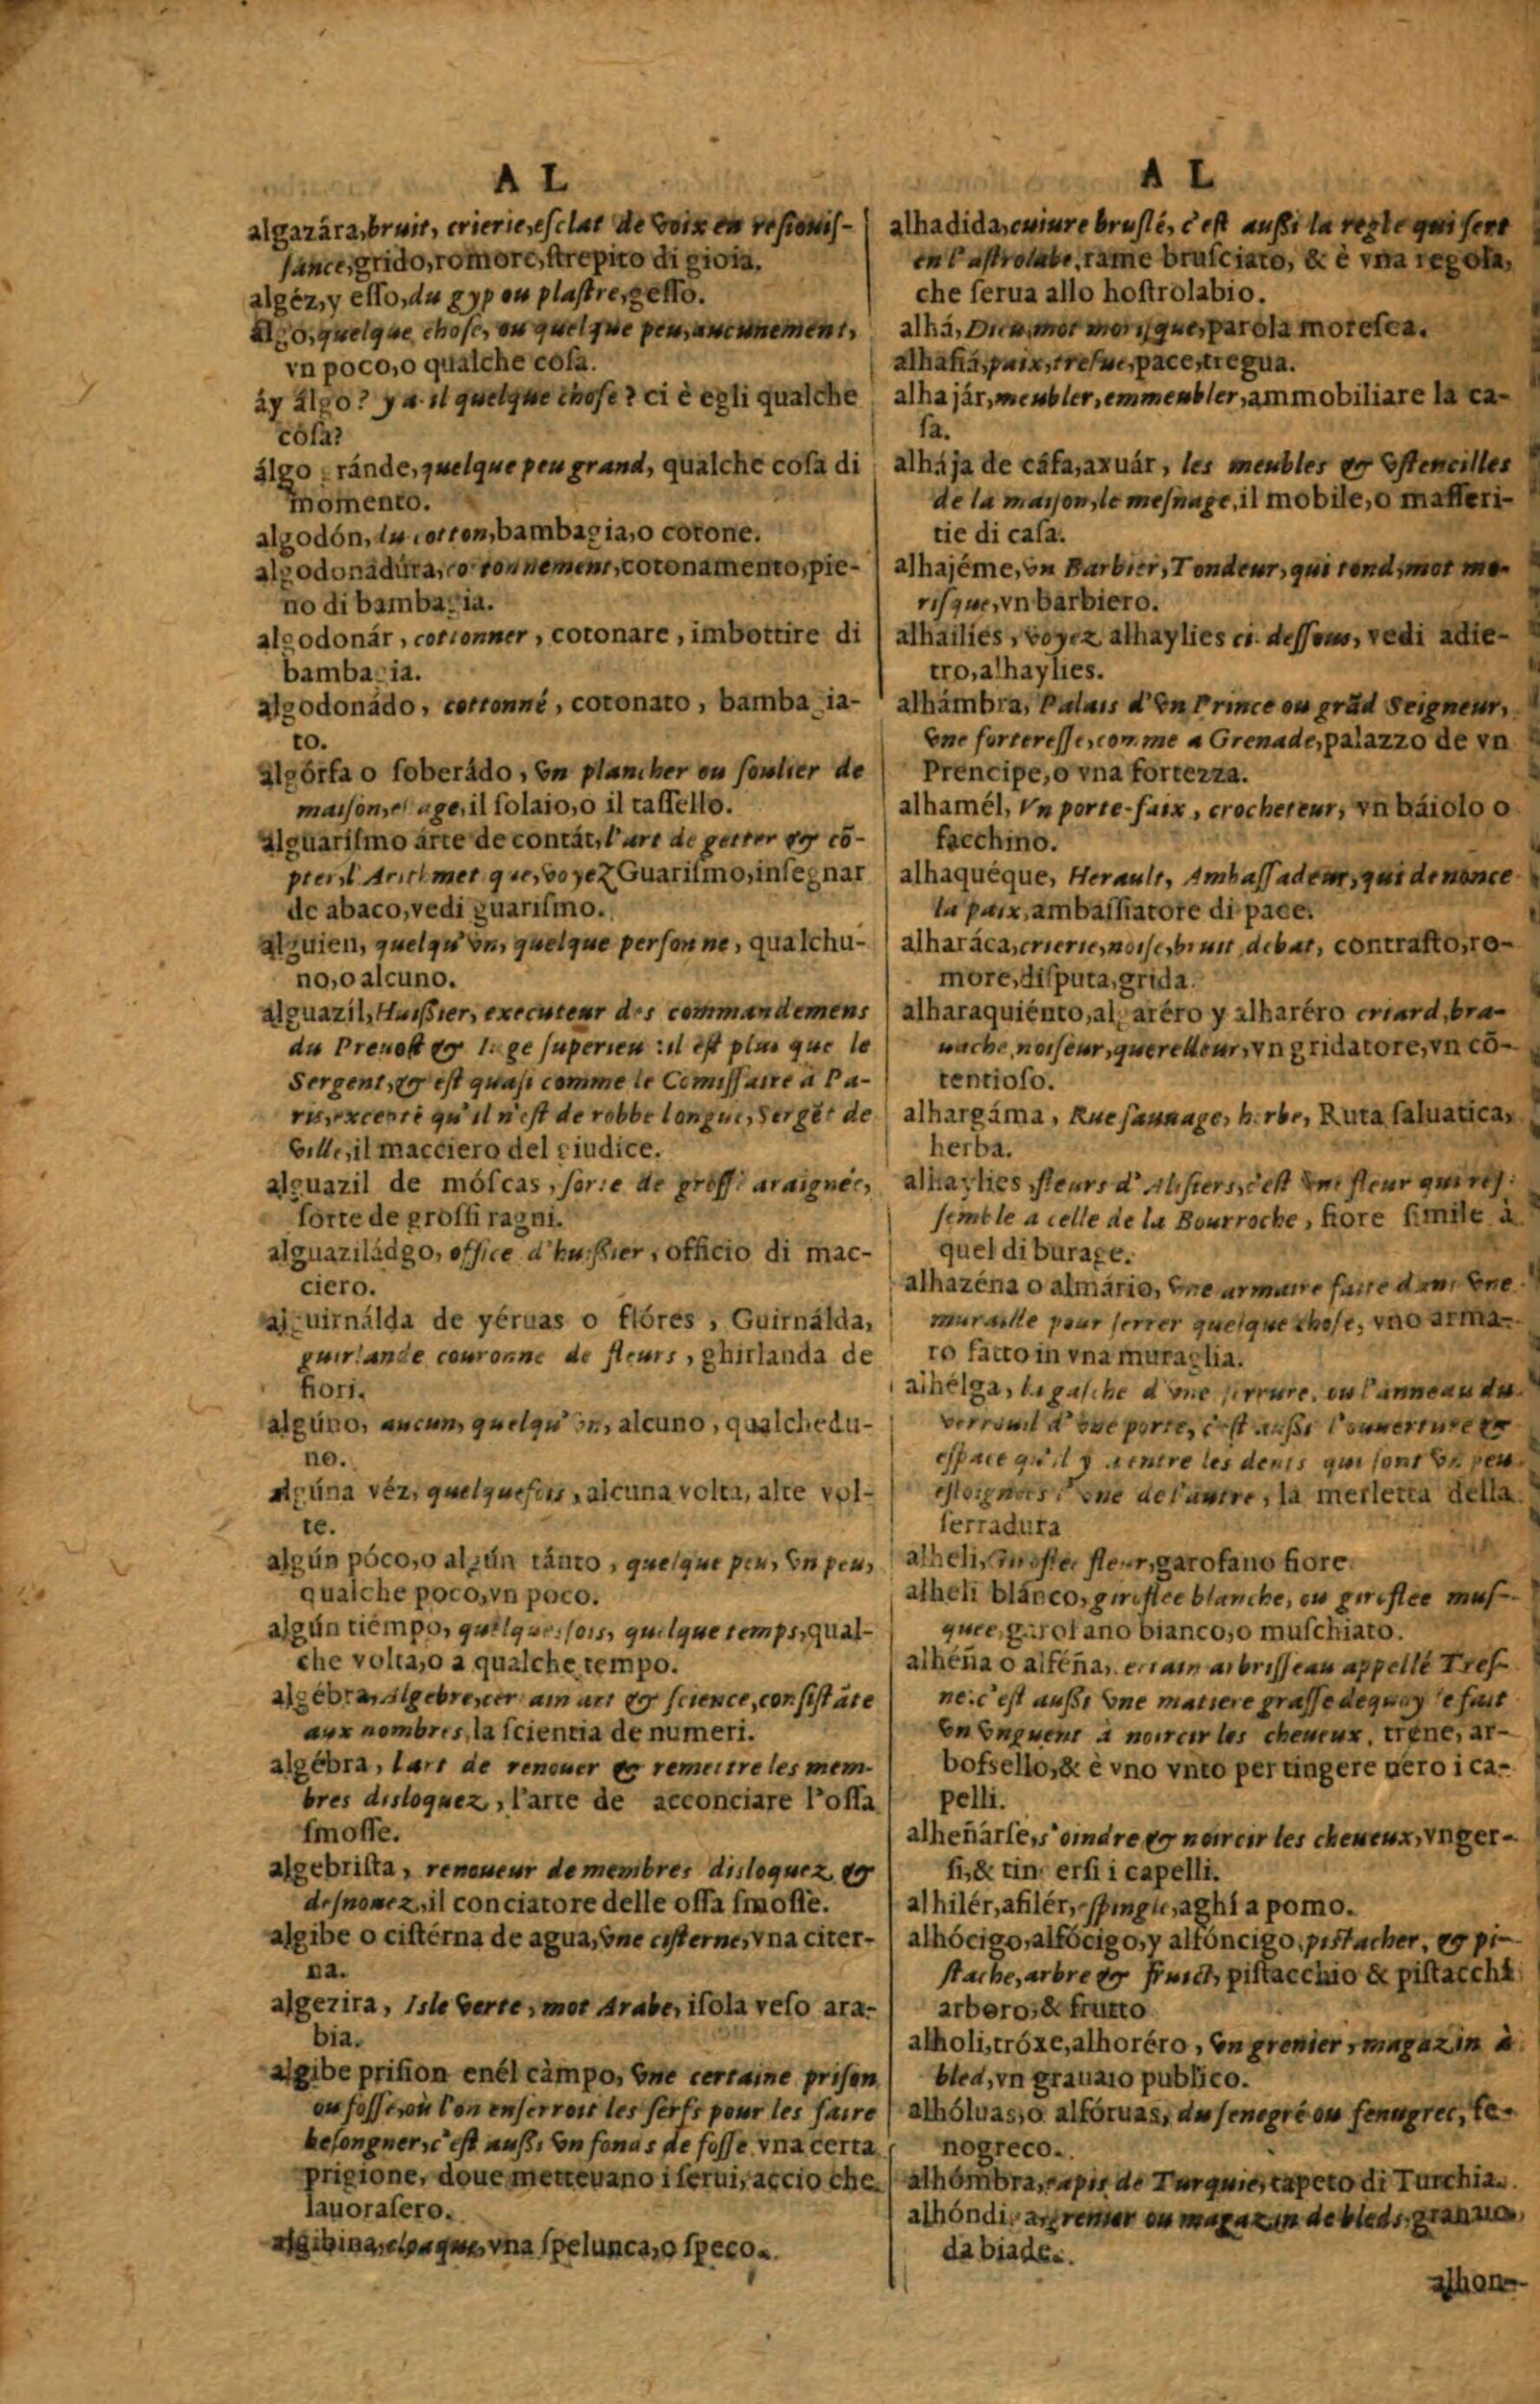 A L
algazára, bruit, crierie, esclat de voix en resiouis-
sance, grido, romore, strepito di gioia.
algéz, y esso, du gyp ou plastre, gesso.
algo, quelque chose, ou quelque peu, aucunement,
vn poco, o qualche cosa.
áy álgo? y a-il quelque chose? ci è egli qualche
cosa?
álgo ránde, quelque peu grand, qualche cosa di
momento.
algodón, du cotton, bambagia, o cotone.
algodonadúra, cotonnement, cotonamento, pie-
no di bambagia.
algodonár, cottonner, cotonare, imbottire di
bambagia.
algodonádo, cottonné, cotonato, bambagia-
to.
algórfa o soberádo, vn plancher ou soulier de
maison, etage, il solaio, o il tassello.
alguarismo árte de contár, l'art de getter & cō-
pter, l'Arithmetique, voyez Guarismo, insegnar
de abaco, vedi guarismo.
alguien, quelqu'vn, quelque personne, qualchu-
no, o alcuno.
alguazíl, Huissier, executeur des commandemens
du Preuost & Iuge superieu: il est plus que le
Sergent, & est quasi comme le Comissaire à Pa-
ris, excepté qu'il n'est de robbe longue, Sergēt de
ville, il macciero del giudice.
alguazil de móscas, sorte de grosse araignée,
sorte de grossi ragni.
alguaziládgo, office d'huissier, officio di mac-
ciero.
alguirnálda de yéruas o flóres, Guirnálda,
guirlande couronne de fleurs, ghirlanda de
fiori.
algúno, aucun, quelqu'vn, alcuno, qualchedu-
no.
algúna véz, quelquefois, alcuna volta, alte vol-
te.
algún póco, o algún tánto, quelque peu, vn peu,
qualche poco, vn poco.
algún tiémpo, quelquesfois, quelque temps, qual-
che volta, o a qualche tempo.
algébra, Algebre, certain art & science, consistāte
aux nombres, la scientia de numeri.
algébra, l'art de renouer & remettre les mem-
bres disloquez, l'arte de acconciare l'ossa
smosse.
algebrista, renoueur de membres disloquez &
desnouez, il conciatore delle ossa smosse.
algibe o cistérna de agua, vne cisterne, vna citer-
na.
algezira, Isle verte, mot Arabe, isola veso ara-
bia.
algibe prision enél càmpo, vne certaine prison
ou fosse, où l'on enserroit les serfs pour les faire
besongner, c'est aussi vn fonds de fosse vna certa
prigione, doue metteuano i serui, accio che
lauorasero.
algibina, cloaque, vna spelunca, o speco.
A L
alhadida, cuiure bruslé, c'est aussi la regle qui sert
en l'astrolabe, rame brusciato, & è vna regola,
che serua allo hostrolabio.
alhá, Dieu, mot morisque, parola moresca.
alhafiá, paix, tresue, pace, tregua.
alhajár, meubler, emmeubler, ammobiliare la ca-
sa.
alhája de cása, axuár, les meubles & vstencilles
de la maison, le mesnage, il mobile, o masseri-
tie di casa.
alhajéme, vn Barbier, Tondeur, qui tond, mot mo-
risque, vn barbiero.
alhailies, voyez alhaylies ci-dessous, vedi adie-
tro, alhaylies.
alhámbra, Palais d'vn Prince ou grād Seigneur,
vne forteresse, comme a Grenade, palazzo de vn
Prencipe, o vna fortezza.
alhamél, Vn porte-faix, crocheteur, vn báiolo o
facchino.
alhaquéque, Herault, Ambassadeur, qui denonce
la paix, ambassiatore di pace.
alharáca, crierie, noise, bruit debat, contrasto, ro-
more, disputa, grida.
alharaquiénto, algaréro y alharéro criard, bra-
uache, noiseur, querelleur, vn gridatore, vn cō-
tentioso.
alhargáma, Rue sauuage, herbe, Ruta saluatica,
herba.
alhaylies, fleurs d'Alisiers, c'est vne fleur qui res-
semble a celle de la Bourroche, fiore simile à
quel di burage.
alhazéna o almário, vne armaire faite dans vne
muraille pour serrer quelque chose, vno arma-
ro fatto in vna muraglia.
alhélga, la gasche d'vne serrure, ou l'anneau du
verrouil d'vne porte, c'est aussi l'ouuerture &
espace qu'il y a entre les dents qui sont vn peu
esloignees l'vne de l'autre, la merletta della
serradura
alheli, Giroflee fleur, garofano fiore.
alheli blánco, giroflee blanche, ou giroflee mus-
quee, garofano bianco, o muschiato.
alhéña o alféña, certain arbrisseau appellé Tres-
ne: c'est aussi vne matiere grasse dequoy se fait
vn vnguent a noircir les cheueux, trene, ar-
bossello, & è vno vnto per tingere nero i ca-
pelli.
alheñárse, s'oindre & noircir les cheueux, vnger-
si, & tingersi i capelli.
alhilér, afilér, espingle, aghi a pomo.
alhócigo, alfócigo, y alfóncigo, pistacher, & pi-
stache, arbre & fruict, pistacchio & pistacchi
arboro, & frutto
alholi, tróxe, alhoréro, vn grenier, magazin à
bled, vn granaio publico.
alhóluas, o alfóruas, du senegré ou fenugrec, fe-
nogreco.
alhómbra, tapis de Turquie, tapeto di Turchia.
alhóndiga, grenier ou magazin de bleds, granaio
da biade.
alhon-